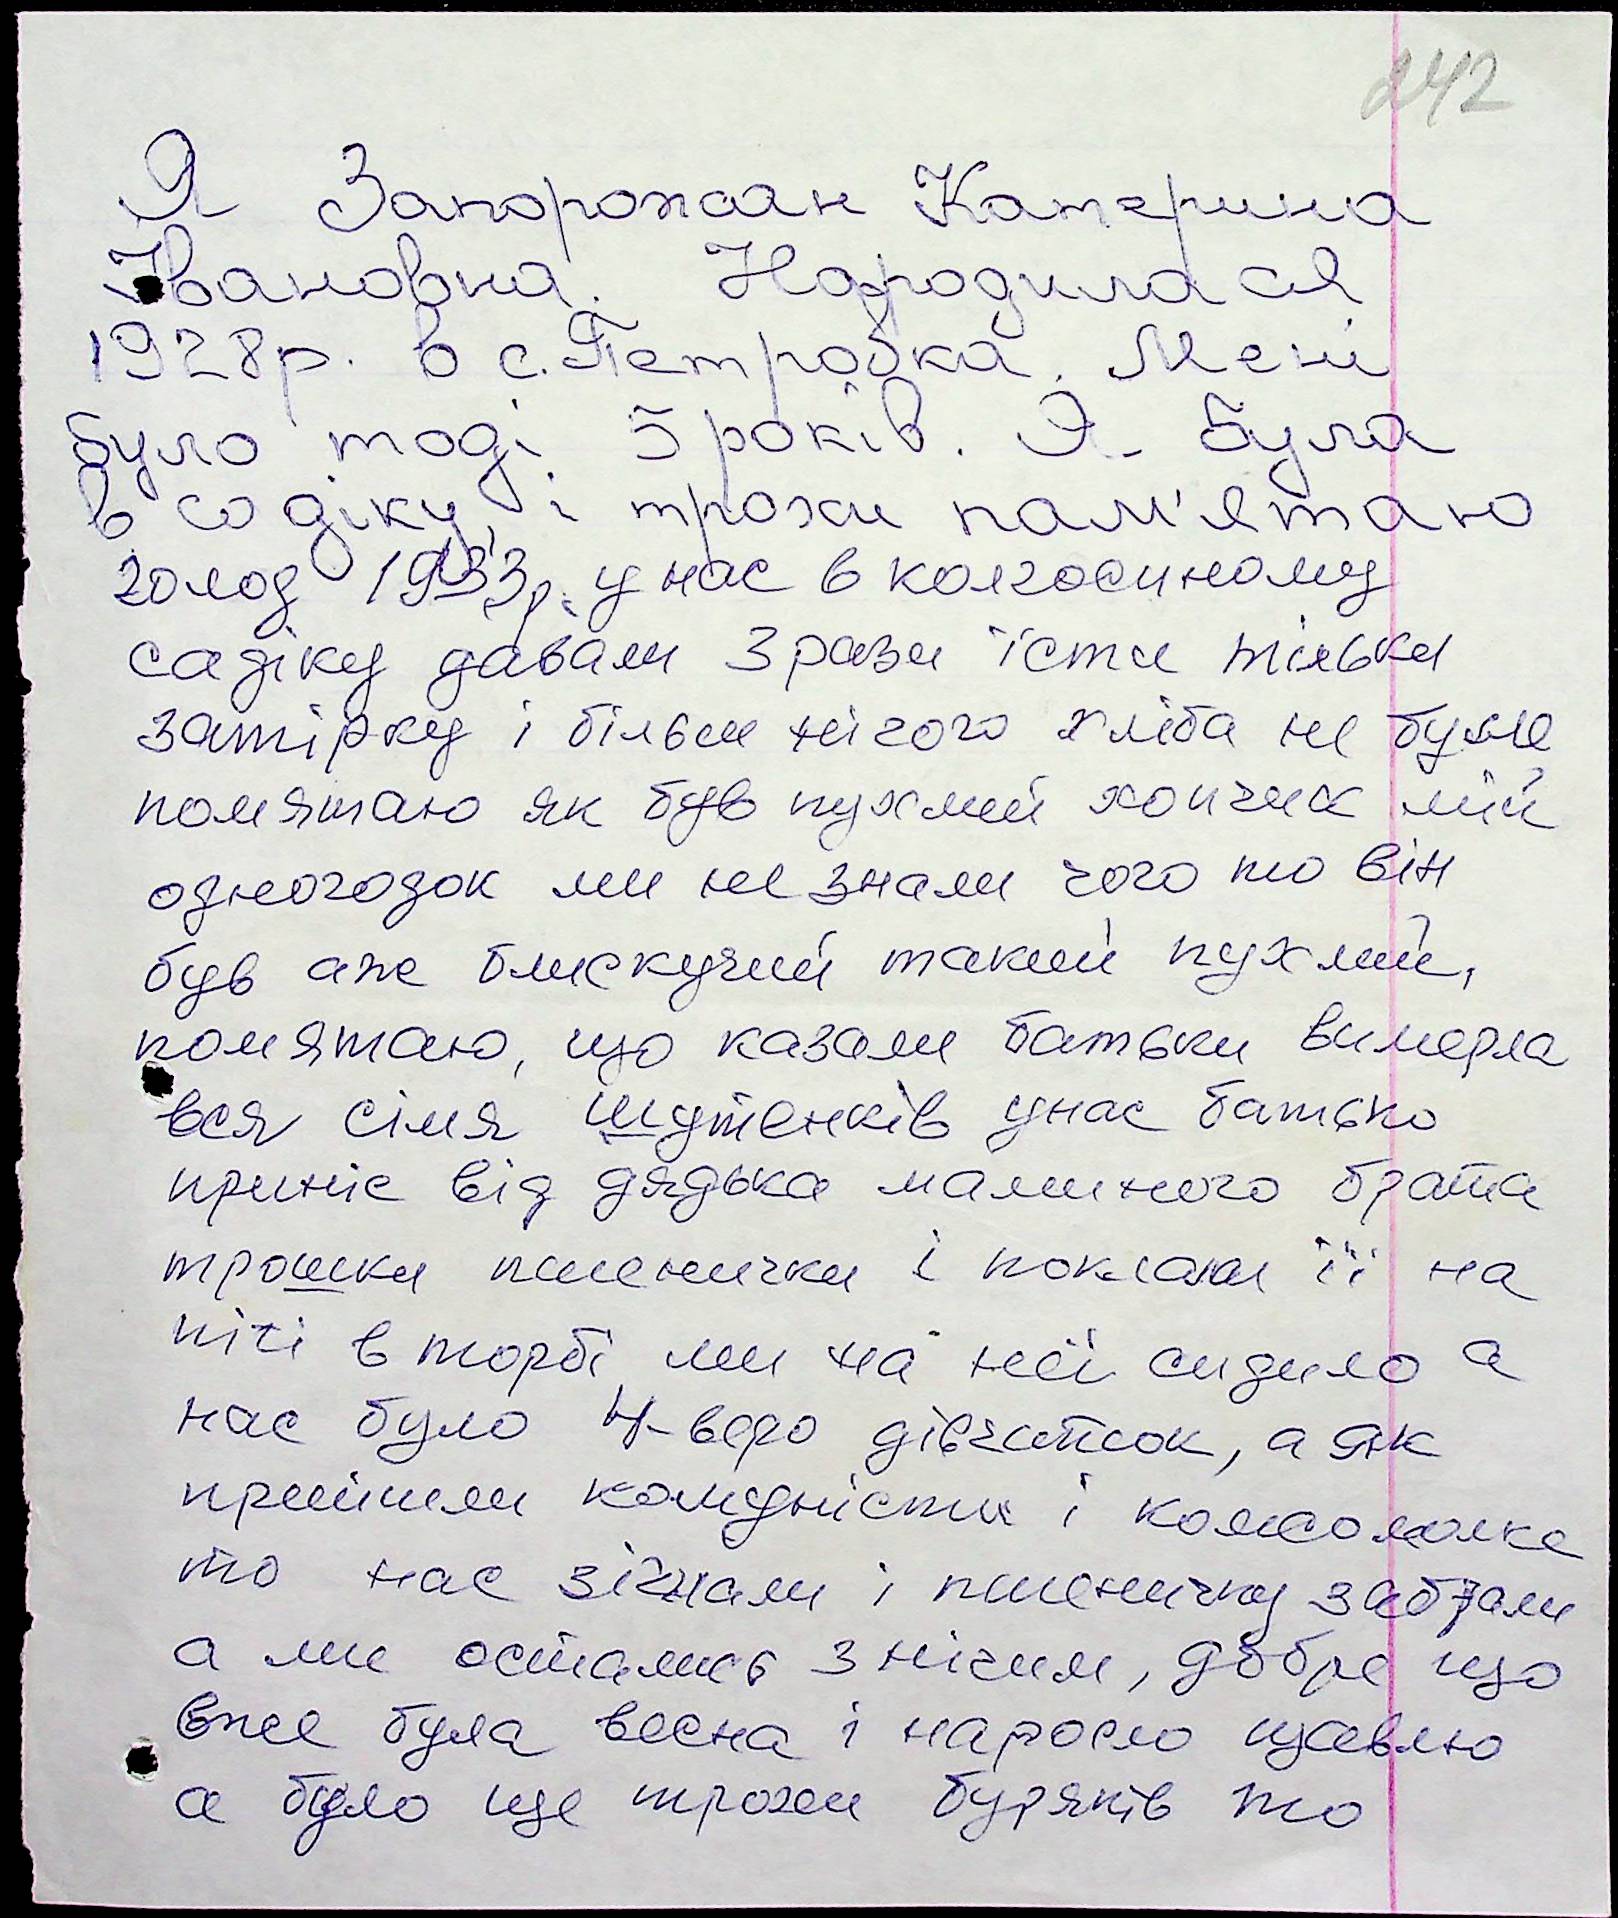 242
Я Запорожан Катерина
Івановна. Народилася
1928р. в с. Петровка. Мені
було тоді 5 років. Я була
в садіку, і трохи пам'ятаю
голод 1933р. у нас в колгоспному
садіку давали 3 рази їсти тільки
затірку і більш нічого хліба не було
помятаю як був пухлий хопчик мій
одногодок ми не знали чого то він
був аже блискучий такий пухлий,
помятаю, що казали батьки вимерла
вся сімя Шутенків унас батько
приніс від дядька маминого брата
трошки пшенички і поклали її на
пічі в торбі ми на неї сиділо а
нас було 4-веро дівчаток, а як
прийшли комуністи і комсомолке
то нас зігнали і пшеничку забрали
а ми остались з нічим, добре що
вже була весна і наросло щавлю
а було ще трохи буряків то